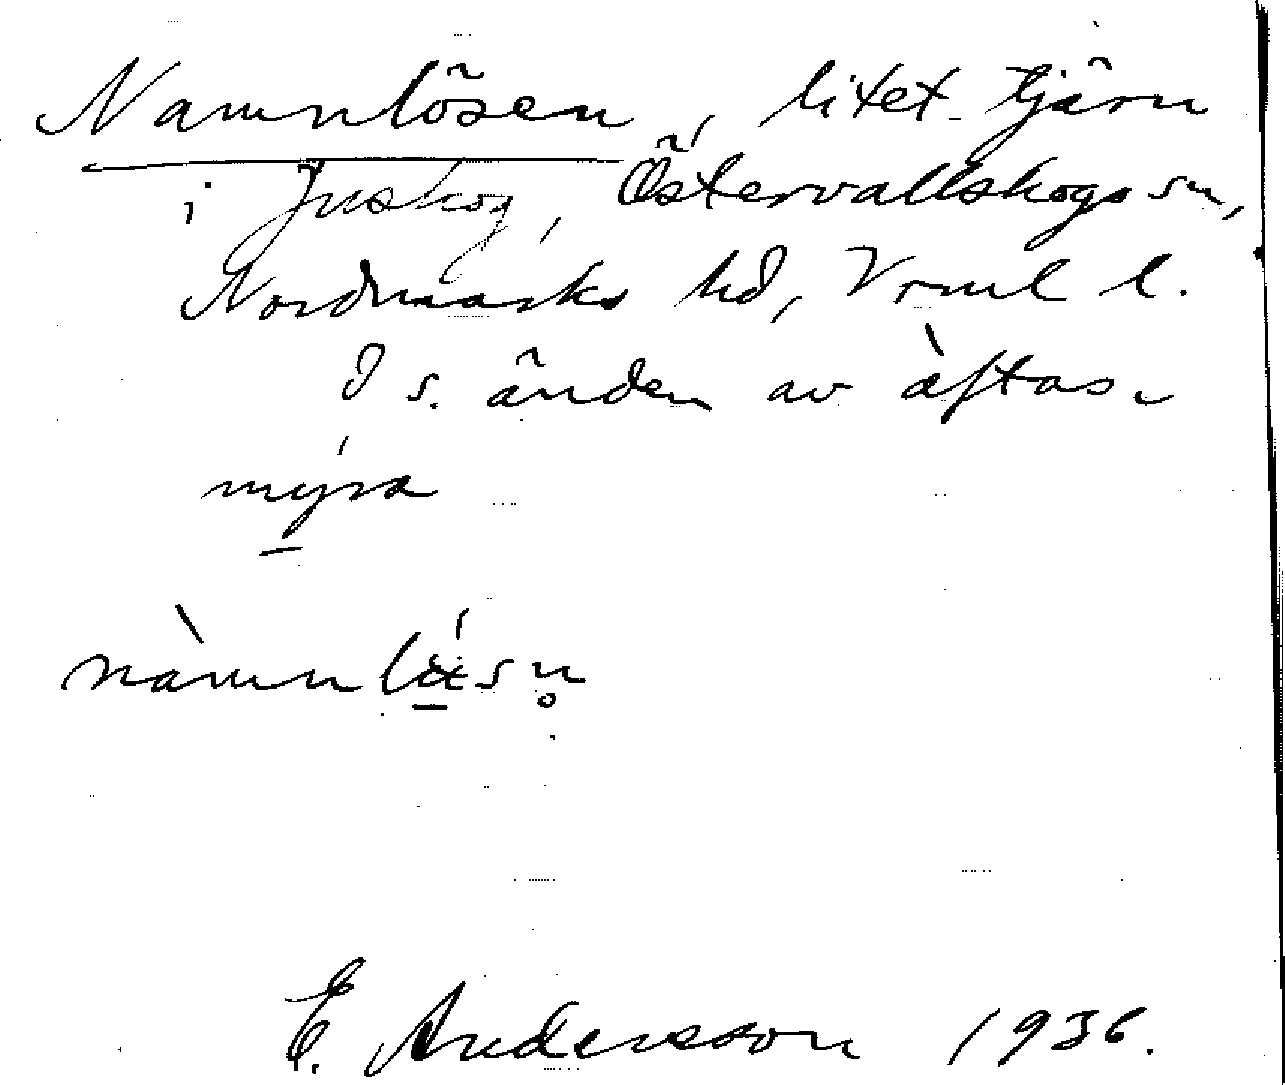 Namnlösen, litet tjärn
i Juskog, Östervallskogs sn,
Nordmarks hd, Vrml l.
I s. änden av àftas-
mýra
nàmnlǿsn̥
E. Andersson 1936.